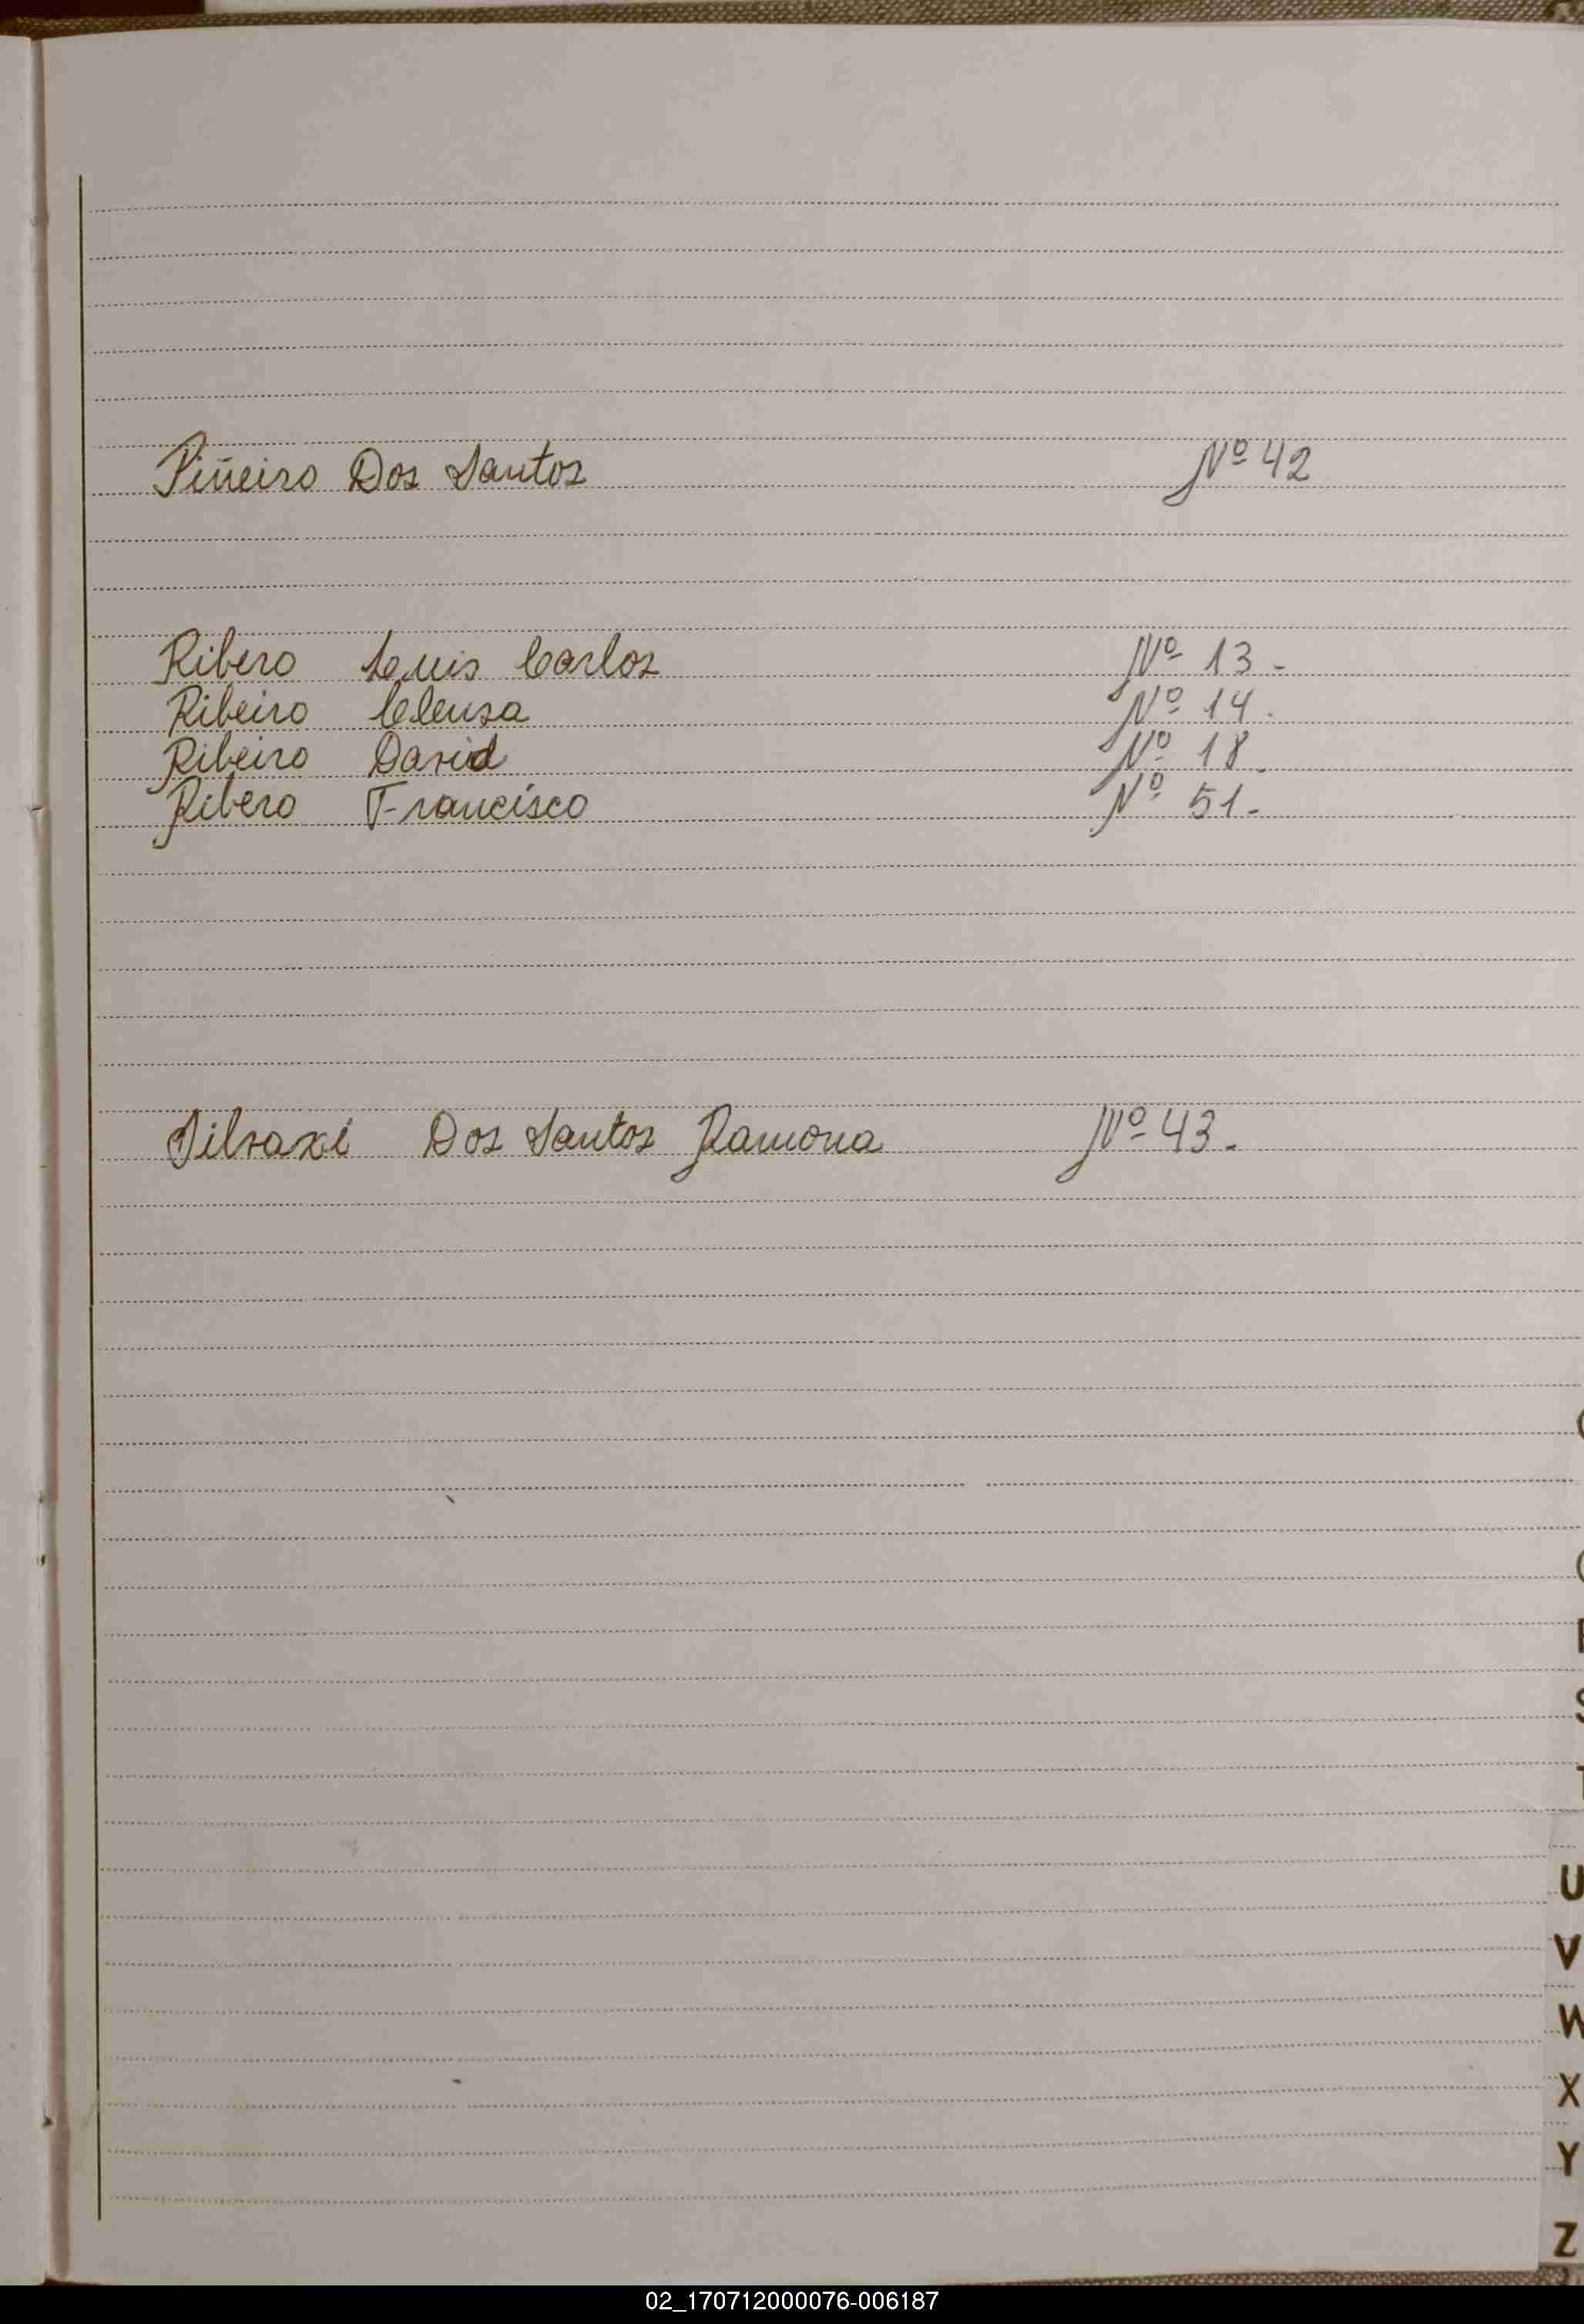 Piñeiro Dos Santos Nº 42
Ribero Luis Carlos Nº 13.-
Ribeiro Cleusa Nº 14.
Ribeiro David Nº 18.
Ribero Francisco Nº 51.-
Dos Santos Ramona Nº 43.-
U
V
W
X
Y
Z
02_170712000076-006187